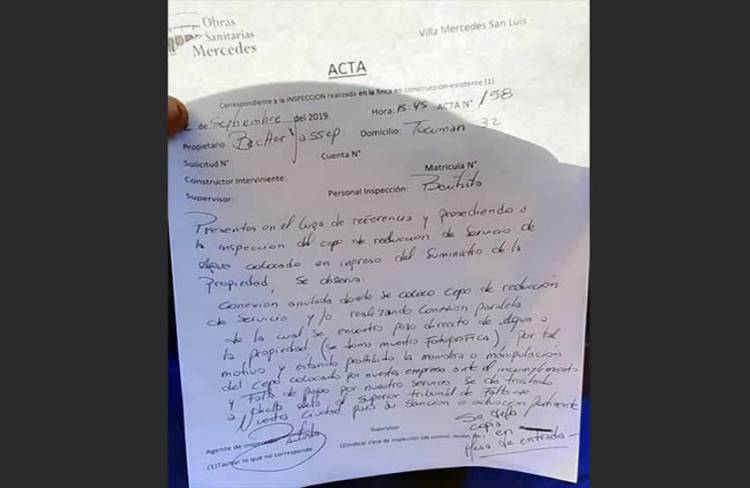 Obras
Sanitarias
Mercedes
Villa Mercedes San Luis
ACTA
Correspondiente a la INSPECCION realizada en la finca en construcción existente (1)
2 de Septiembre del 2019. Hora: 15:45 ACTA N° 158
Propietario: Domicilio: Tucuman 32
Solicitud N° Cuenta N° Matricula N°
Constructor Interviniente:
Supervisor: Personal Inspección: Bautista
Presentes en el lugar de referencia y prosediendo a
la inspección del cepo de reducción de servicio de
agua colocado en ingreso del suministro de la
propiedad, se observa.
Conexión anulada donde se coloco cepo de reducción
de servicio y/o realizando conexión paralela
de la cual se encontro paso directo de agua a
la propiedad, (se tomo muestra fotografica), por tal
motivo y estando prohibido la maniobra o manipulación
del cepo colocado por nuestra empresa ante el incumplimiento
y falta de pago por nuestro servicio. Se da traslado
a dicha acta al superior tribunal de faltas de
nuestra ciudad para su sanción o actuación pertinente
Se deja
copia
en
Mesa de entrada
Supervisor
Agente de inspección
(1)Tachar lo que no corresponde